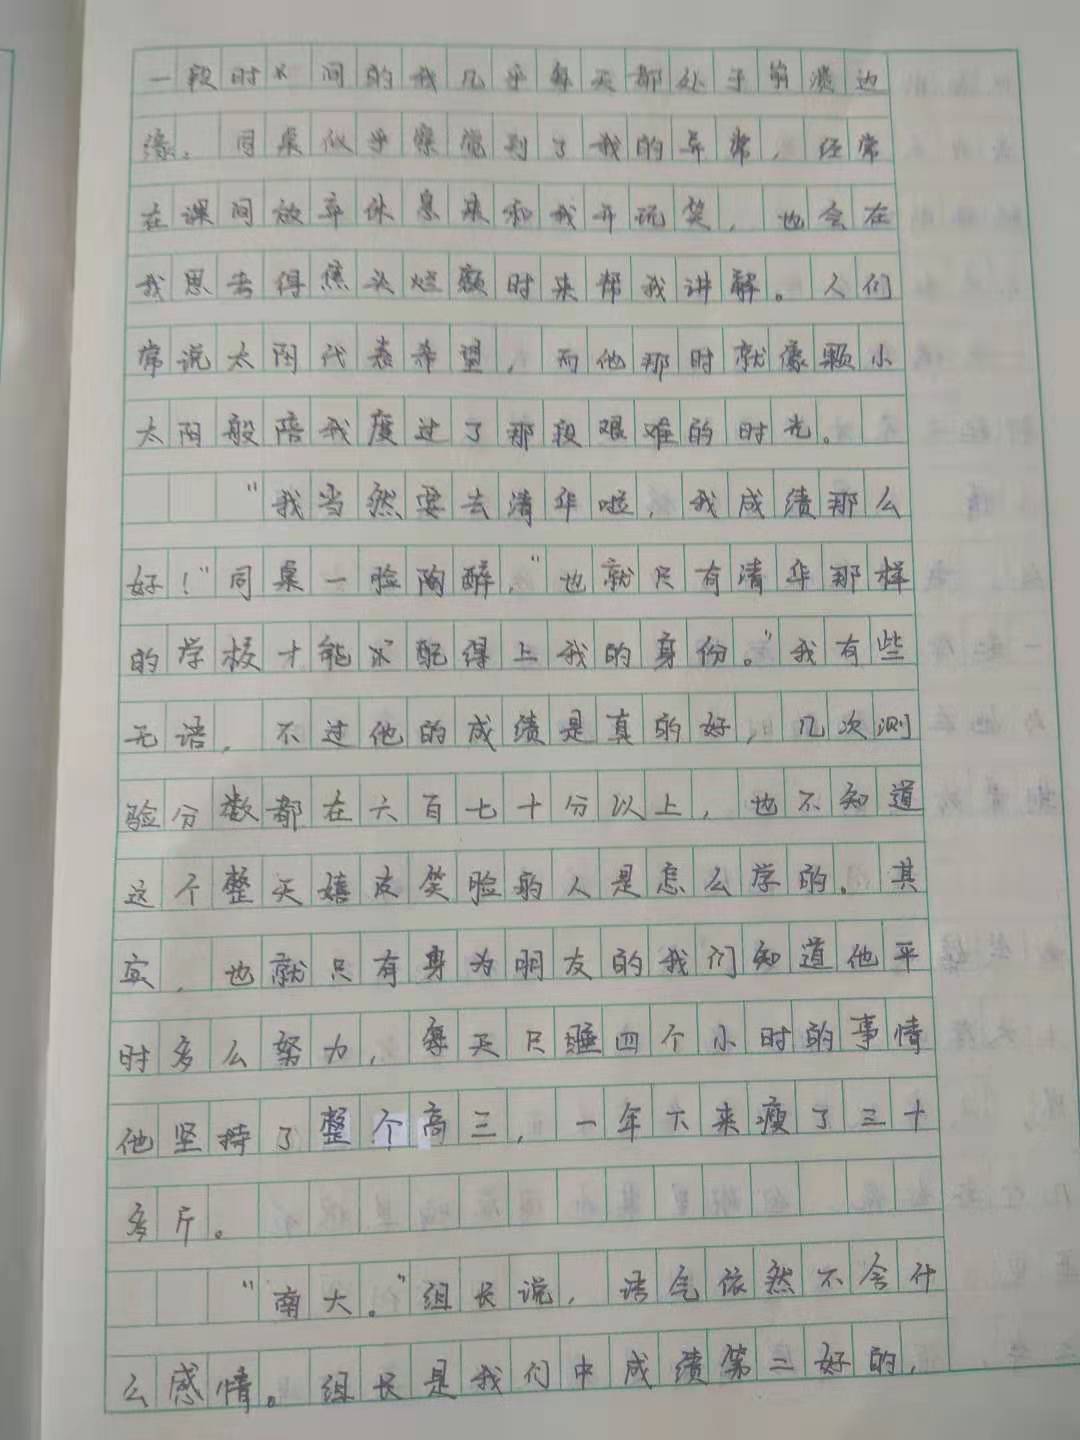 一段时间的我几乎每天都处于崩溃边
缘。同桌似乎察觉到了我的异常，经常
在课间放弃休息来和我开玩笑，也会在
我思考得焦头烂额时来帮我讲解。人们
常说太阳代表希望，而他那时就像颗小
太阳般陪我度过了那段艰难的时光。
“我当然要去清华啦，我成绩那么
好！”同桌一脸陶醉，“也就只有清华那样
的学校才能配得上我的身份。”我有些
无语，不过他的成绩是真的好，几次测
验分数都在六百七十分以上，也不知道
这个整天嬉皮笑脸的人是怎么学的。其
实，也就只有身为朋友的我们知道他平
时多么努力，每天只睡四个小时的事情
他坚持了整个高三，一年下来瘦了三十
多斤。
“南大。”组长说，语气依然不含什
么感情。组长是我们中成绩第二好的，